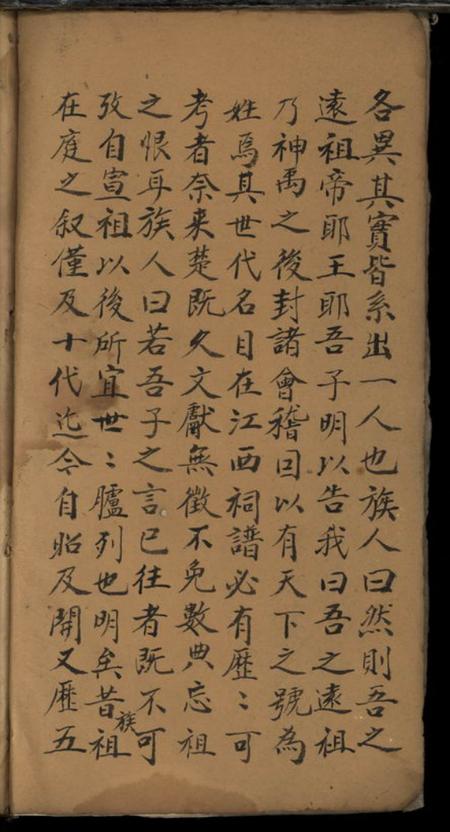 各異其實皆系出一人也族人曰然則吾之
遠祖帝耶王耶吾子明以告我曰吾之遠祖
乃神禹之後封諸會稽因以有天下之號為
姓焉其世代名目在江西祠譜必有歷〻可
考者奈来楚既久文獻無徵不免數典忘祖
之恨耳族人曰若吾子之言已往者既不可
攷自宣祖以後所宜世〻臚列也明矣昔族祖
在庭之叙僅及十代迄今自昭及開又歷五